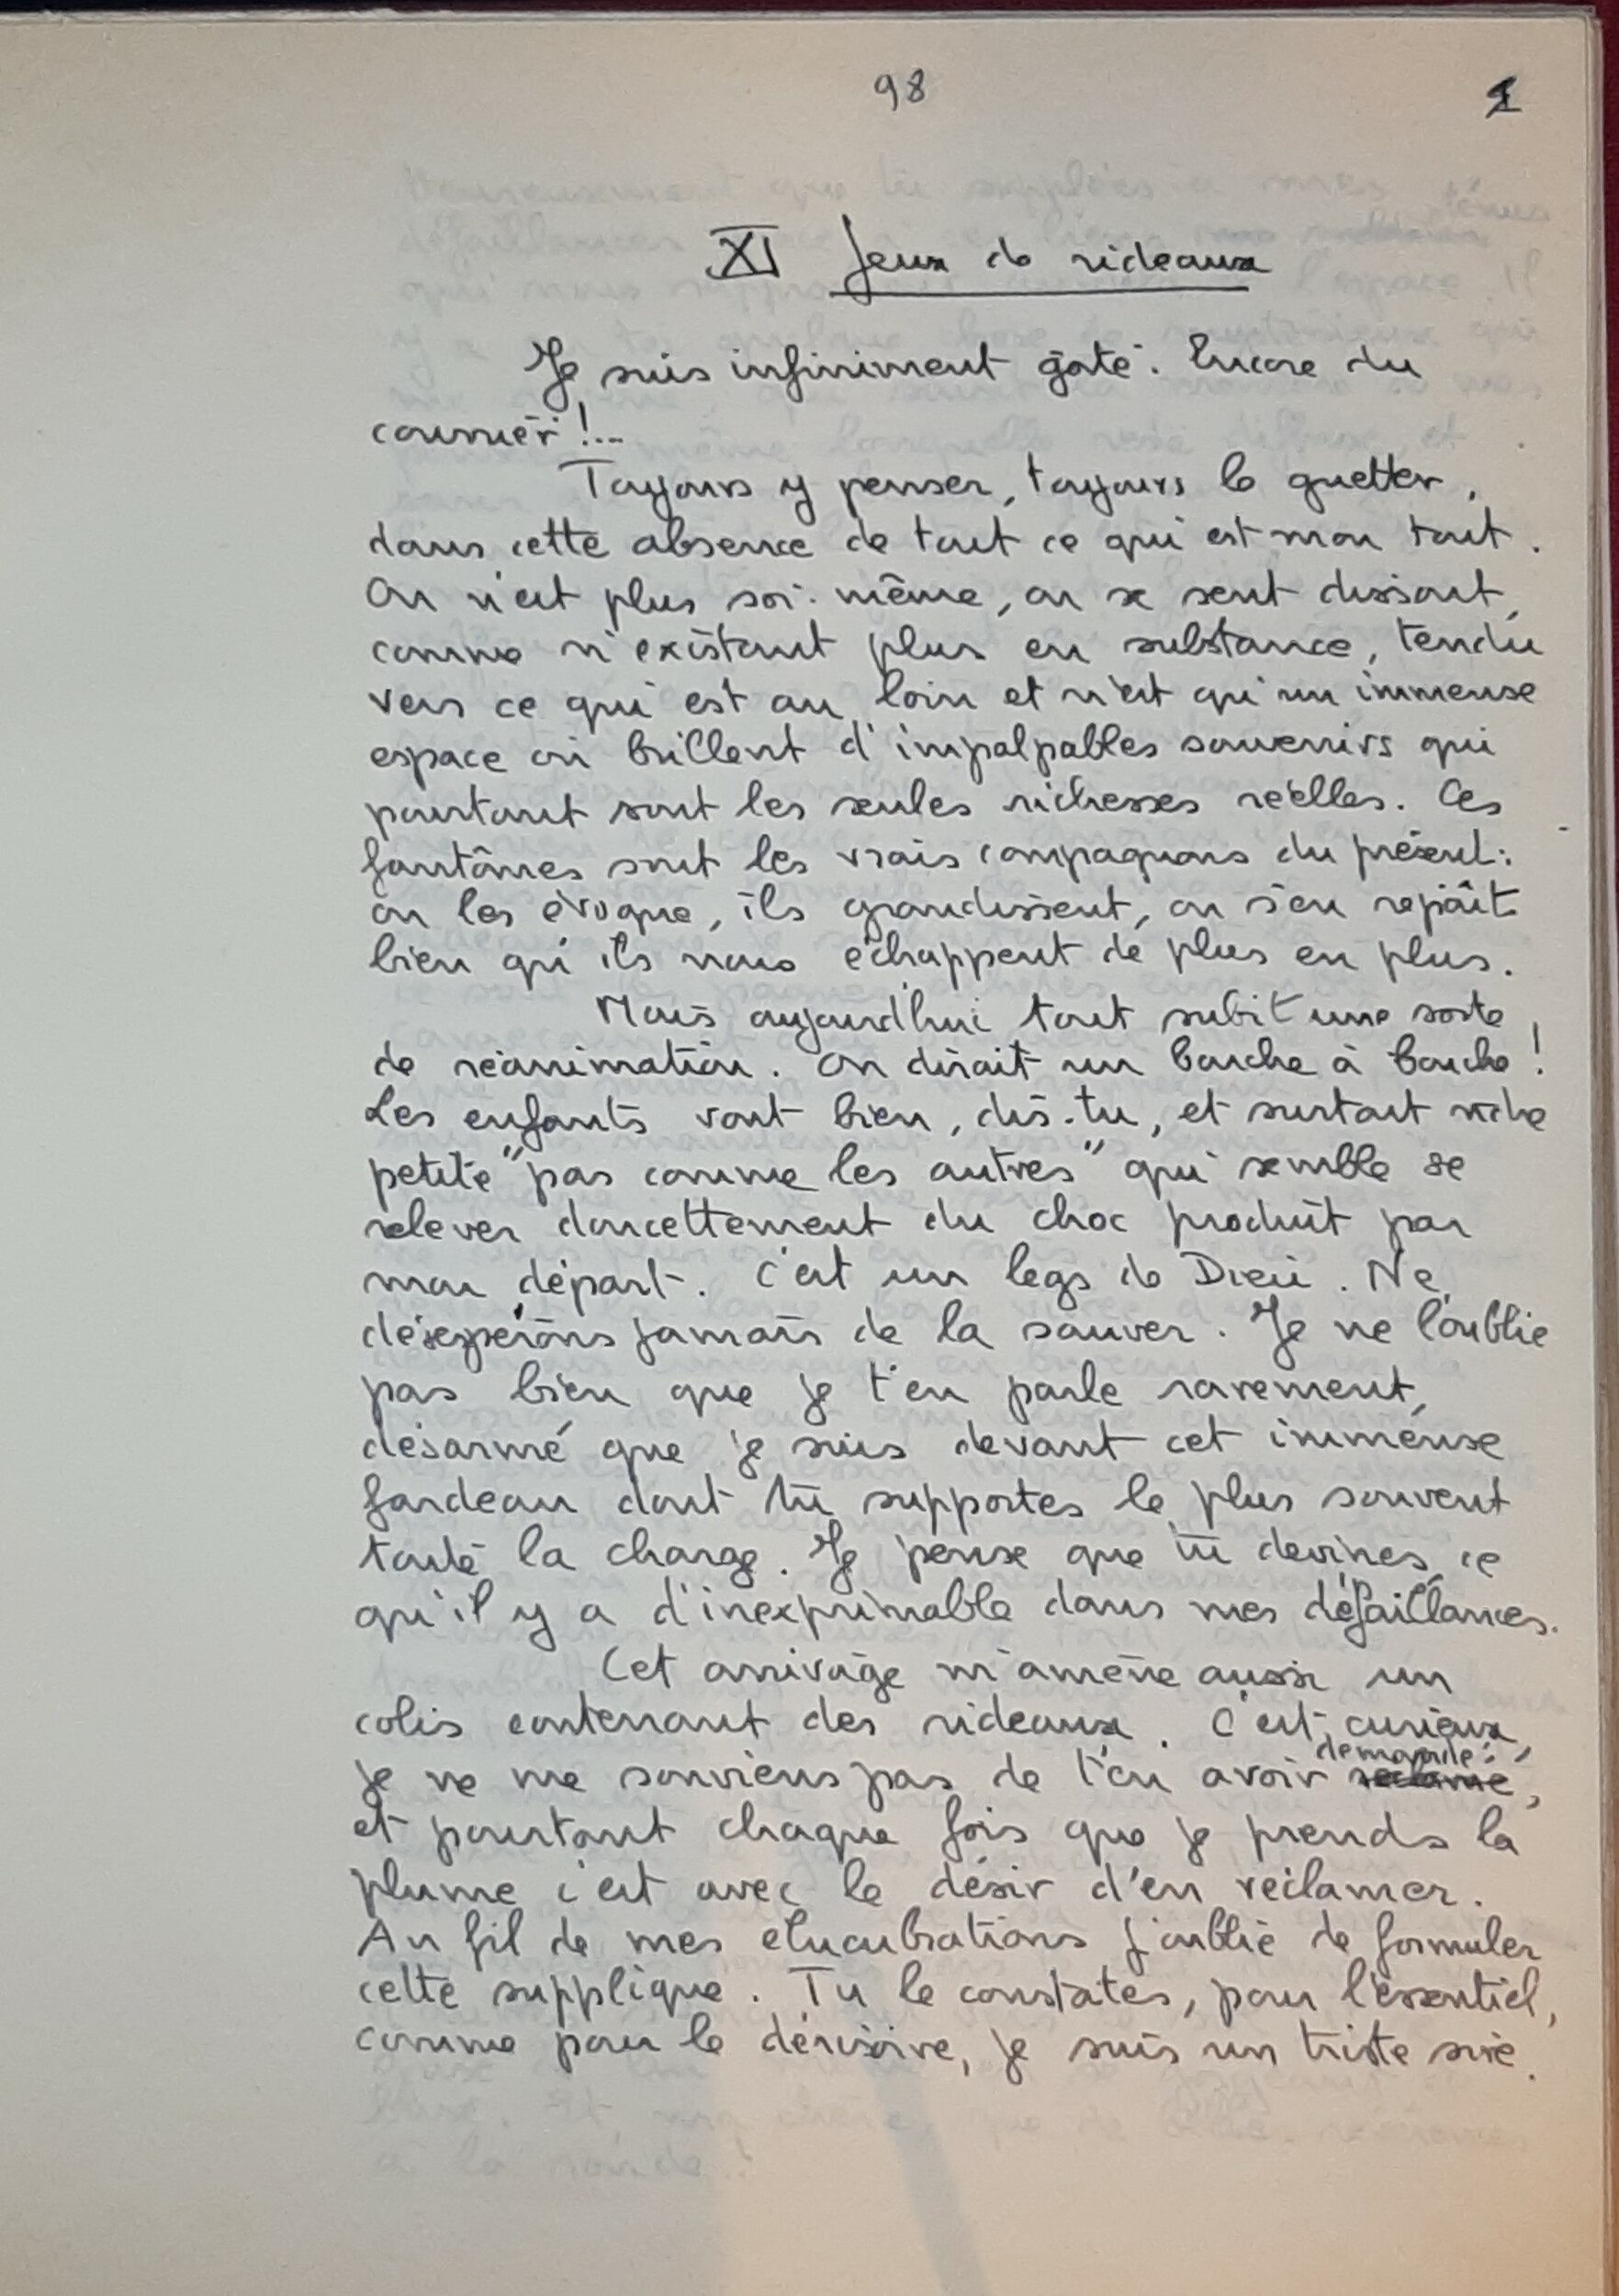 98
1
XI Jeux de rideaux
Je suis infiniment gâté. Encore du
courrier !...
Toujours y penser, toujours le guetter,
dans cette absence de tout ce qui est mon tout.
On n'est plus soi-même, on se sent dissout,
comme n'existant plus en substance, tendu
vers ce qui est au loin et n'est qu'un immense
espace où brillent d'impalpables souvenirs qui
pourtant sont les seules richesses réelles. Ces
fantômes sont les vrais compagnons du présent :
on les évoque, ils grandissent, on s'en repaît
bien qu'ils nous échappent de plus en plus.
Mais aujourd'hui tout subit une sorte
de réanimation. On dirait un bouche à bouche !
Les enfants vont bien, dis-tu, et surtout notre
petite "pas comme les autres" qui semble se
relever doucettement du choc produit par
mon départ. C'est un legs de Dieu. Ne
désespérons jamais de la sauver. Je ne l'oublie
pas bien que je t'en parle rarement,
désarmé que je suis devant cet immense
fardeau dont tu supportes le plus souvent
toute la charge. Je pense que tu devines ce
qu'il y a d'inexprimable dans mes défaillances.
Cet arrivage m'amène aussi un
colis contenant des rideaux. C'est curieux,
je ne me souviens pas de t'en avoir réclamé demandé,
et pourtant chaque fois que je prends la
plume c'est avec le désir d'en réclamer.
Au fil de mes élucubrations j'oublie de formuler
cette supplique. Tu le constates, pour l'essentiel,
comme pour le dérisoire, je suis un triste sire.